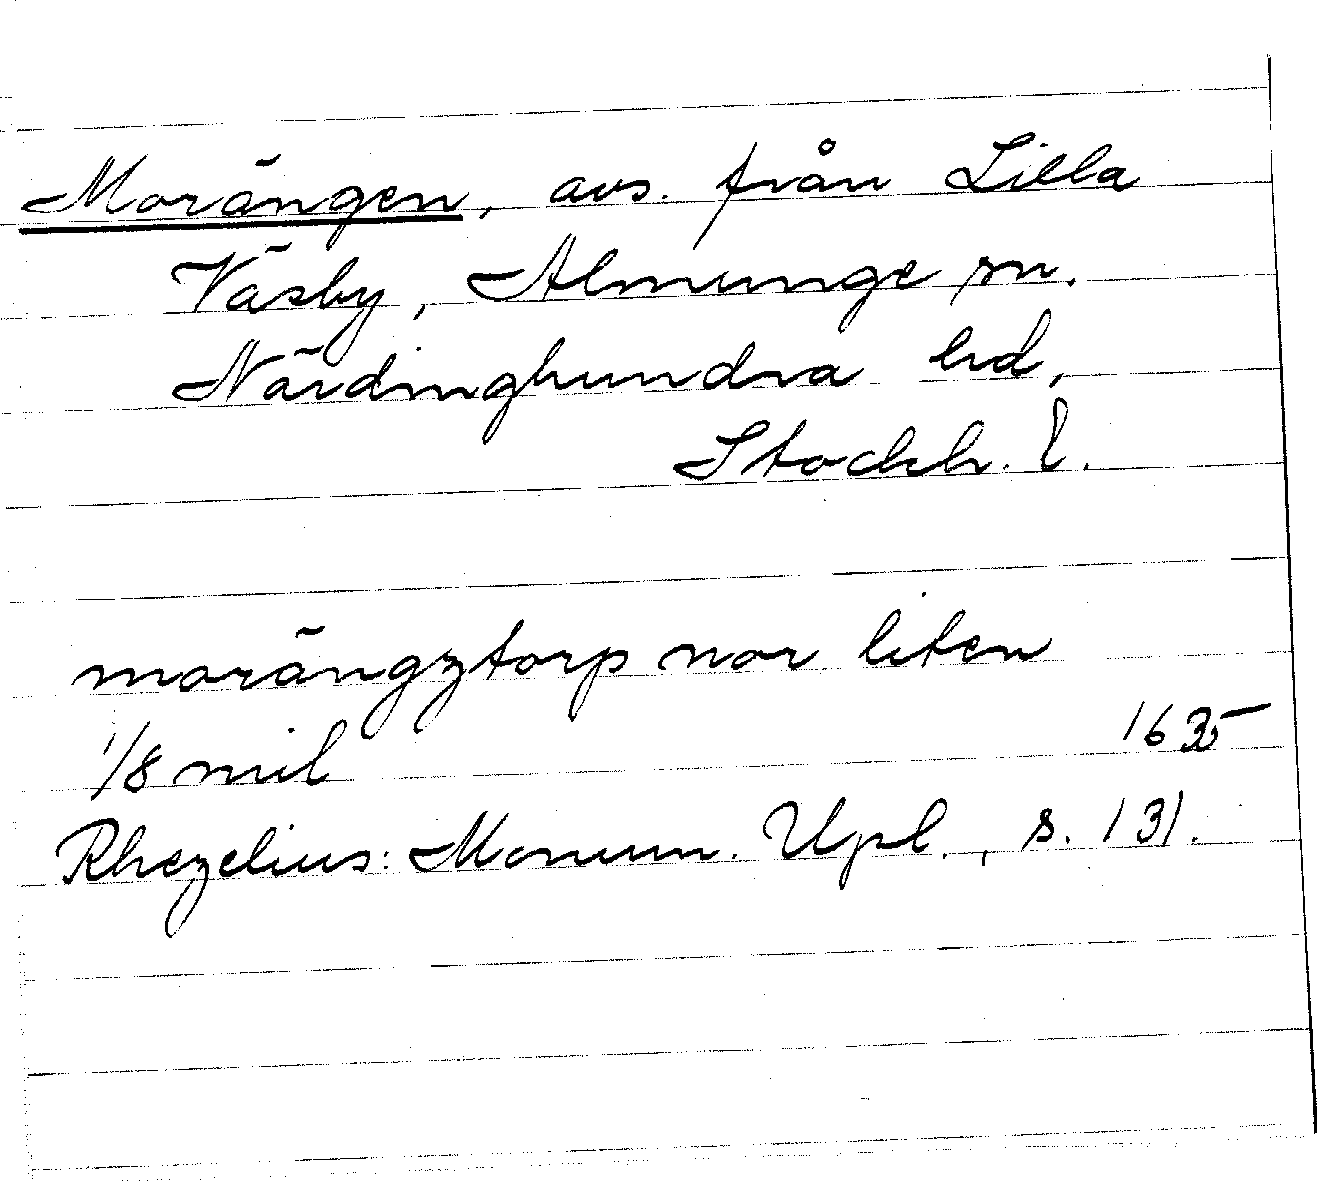 Morängen, avs. från Lilla
Väsby, Almunge sn.
Närdinghundra hd,
Stockh. l.
morängztorp nor liten
1/8 mil 1635
Rhezelius: Monum. Upl., s. 131.